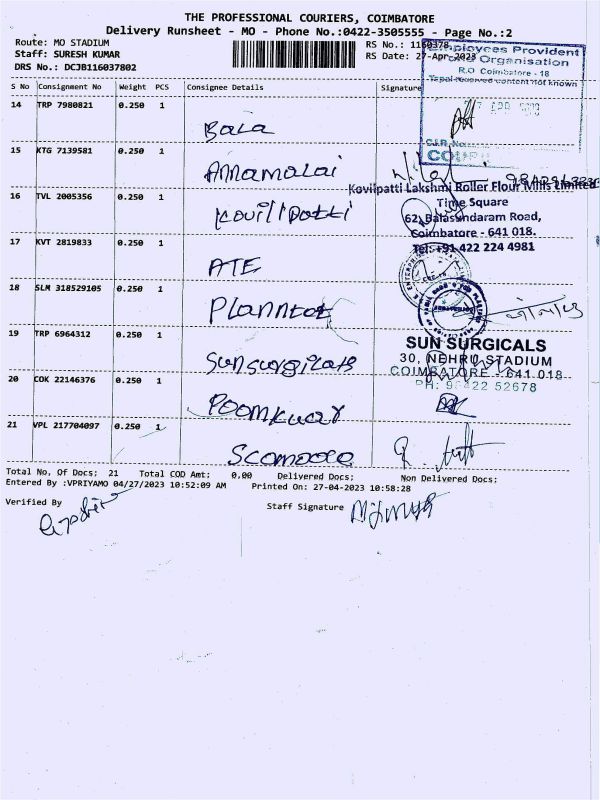 THE PROFESSIONAL COURIERS, COIMBATORE
Delivery Runsheet - MO - Phone No.:0422-3505555 - Page No.:2
Route: MO STADIUM
RS No.: 1160378
Staff: SURESH KUMAR
RS Date: 27-Apr-2023
DRS No.: DCJB116037802
Employees Provident
Organisation
R.O Coimbatore - 18
Tapal received content not known
S No Consignment No Weight PCS Consignee Details Signature
14 TRP 7980821 0.250 1
Bala
15 KTG 7139581 0.250 1
Annamalai
Kovilpatti Lakshmi Roller Flour Mills Limited
16 TVL 2005356 0.250 1
Time Square
Kovillpatti
62, Balasundaram Road,
Coimbatore - 641 018.
17 KVT 2819833 0.250 1
Tel: +91 422 224 4981
ATE
18 SLM 318529105 0.250 1
19 TRP 6964312 0.250 1
SUN SURGICALS
30, NEHRU STADIUM
Sunsurgicals
COIMBATORE - 641 018
20 COK 22146376 0.250 1
PH: 98422 52678
21 VPL 217704097 0.250 1
Total No. Of Docs: 21 Total COD Amt: 0.00 Delivered Docs: Non Delivered Docs:
Entered By :VPRIYAMO 04/27/2023 10:52:09 AM Printed On: 27-04-2023 10:58:28
Verified By
Staff Signature